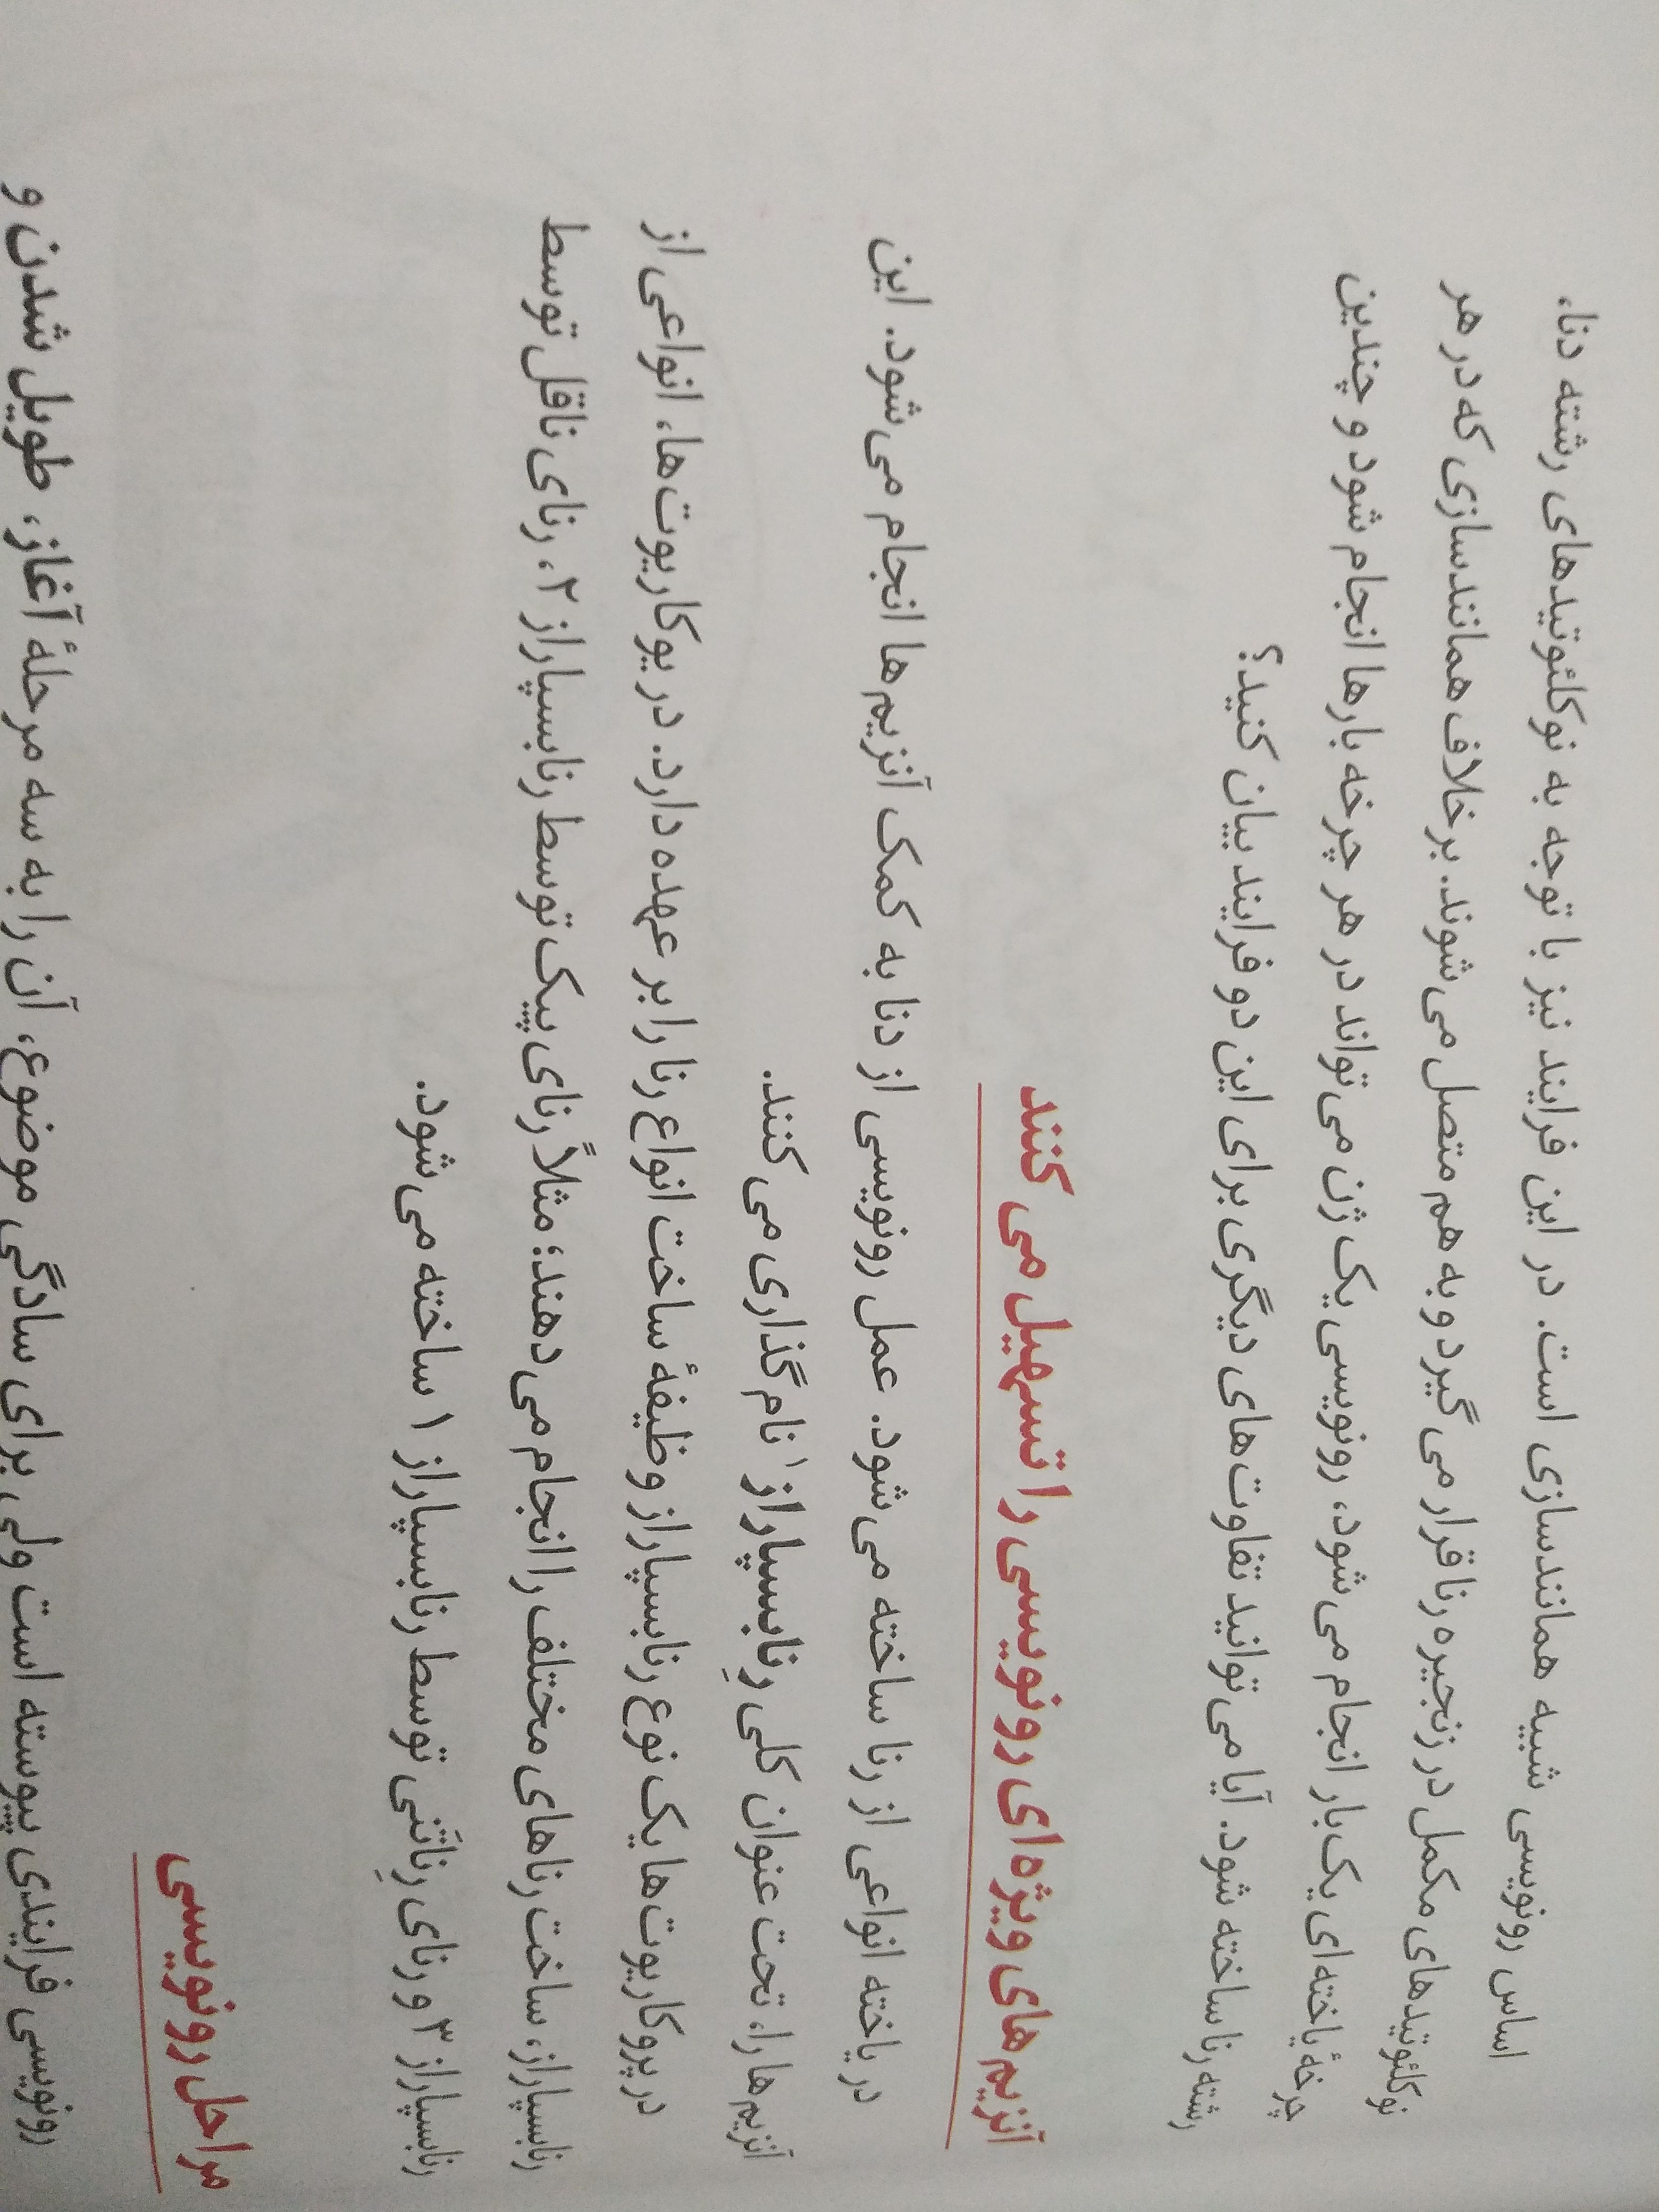 اساس رونویسی شبیه همانندسازی است. در این فرایند نیز با توجه به نوکلئوتیدهای رشته دنا،
نوکلئوتیدهای مکمل در زنجیره رنا قرار می‌گیرد و به هم متصل می‌شوند. برخلاف همانندسازی که در هر
چرخهٔ یاخته‌ای یک‌بار انجام می‌شود، رونویسی یک ژن می‌تواند در هر چرخه بارها انجام شود و چندین
رشته رنا ساخته شود. آیا می‌توانید تفاوت‌های دیگری برای این دو فرایند بیان کنید؟
آنزیم‌های ویژه‌ای رونویسی را تسهیل می‌کنند
در یاخته انواعی از رنا ساخته می‌شود. عمل رونویسی از دنا به کمک آنزیم‌ها انجام می‌شود. این
آنزیم‌ها را، تحت عنوان کلی رِنابسپاراز۱ نام‌گذاری می‌کنند.
در پروکاریوت‌ها یک نوع رنابسپاراز وظیفهٔ ساخت انواع رنا را بر عهده دارد. در یوکاریوت‌ها، انواعی از
رنابسپاراز، ساخت رناهای مختلف را انجام می‌دهند؛ مثلاً رنای پیک توسط رنابسپاراز ۲، رنای ناقل توسط
رنابسپاراز ۳ و رنای رِناتَنی توسط رنابسپاراز ۱ ساخته می‌شود.
مراحل رونویسی
رونویسی فرایندی پیوسته است ولی برای سادگی موضوع، آن را به سه مرحلهٔ آغاز، طویل شدن و